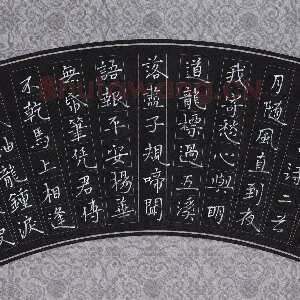 月随風直到夜
我寄愁心與明
道龍標過五溪
落盡子規啼聞
語報平安楊華
無帋筆凭君傳
不乾馬上相逢
袖龍鐘淚